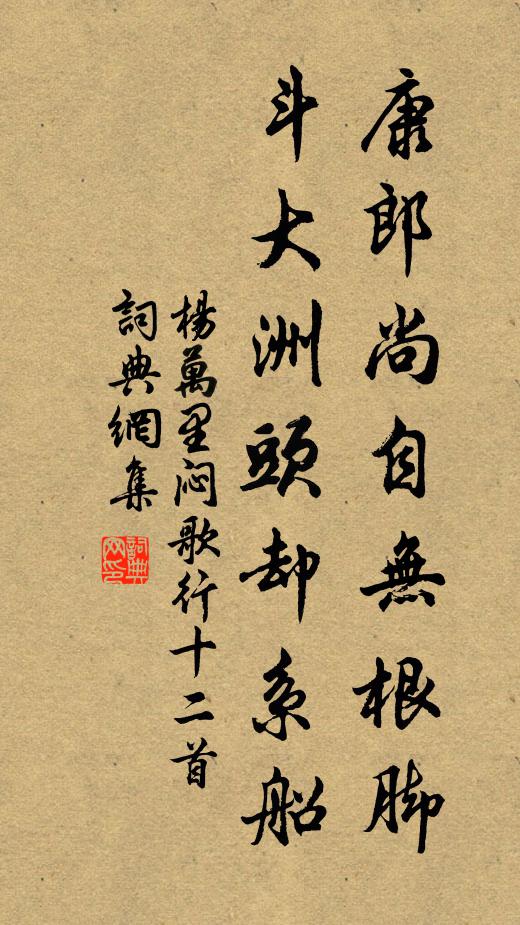 康郎尚自無根脚
斗大洲頭却系船
楊萬里闷歌行十二首
詞典網集
詞典网印